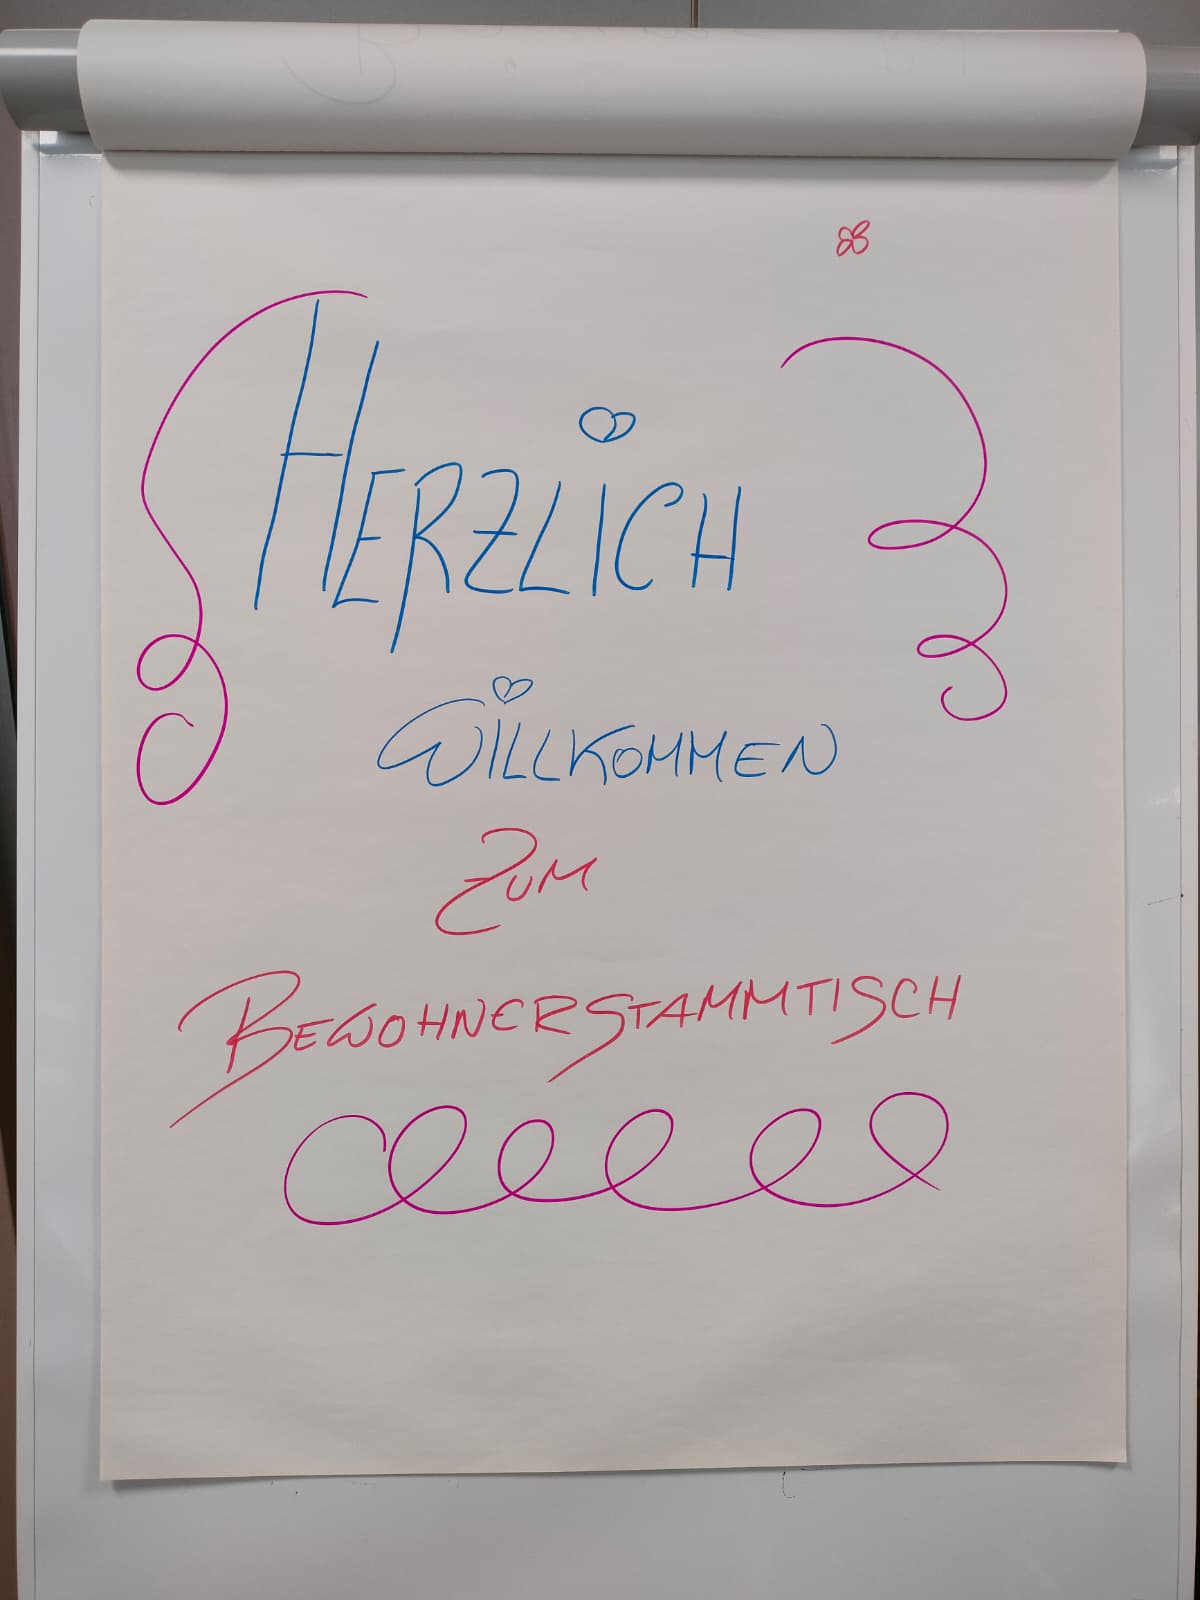 HERZLICH
WILLKOMMEN
ZUM
BEWOHNERSTAMMTISCH